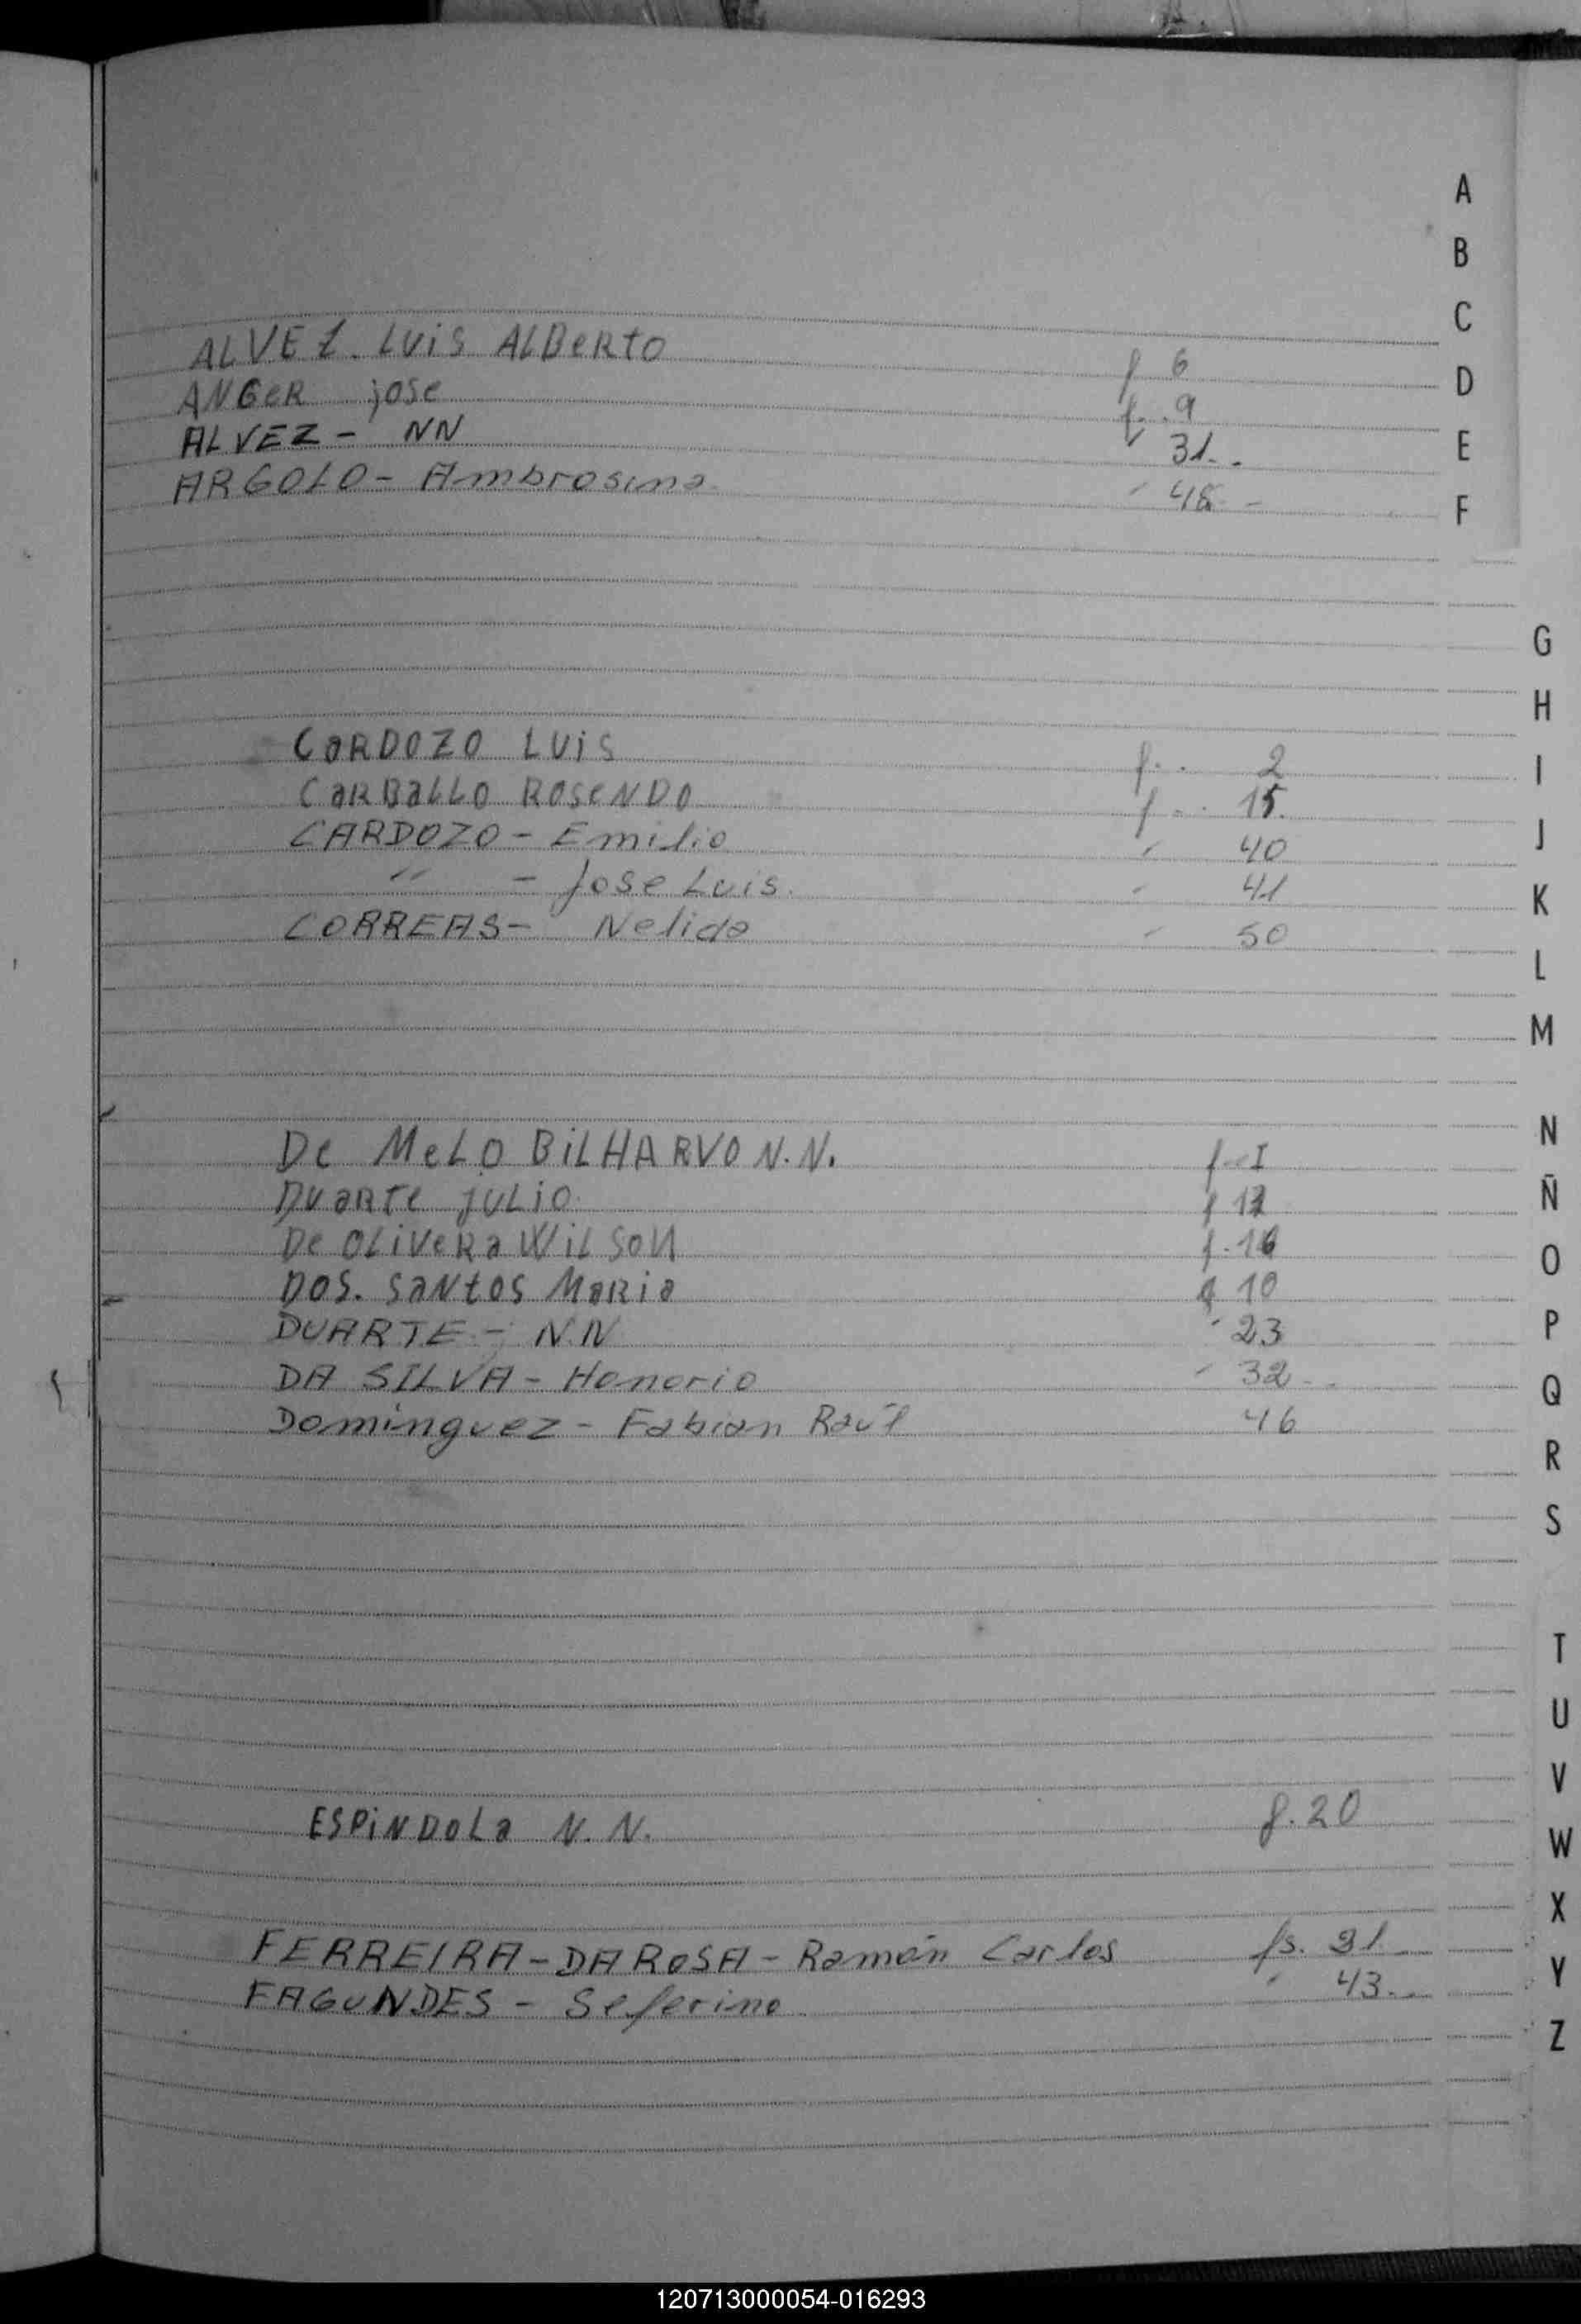 A
B
C
ALVEZ. LUiS ALBeRtO f 6
D
ANGeR jose f. 9
ALVEZ - NN " 31.
E
ARGOLO - Ambrosina " 48 -
F
G
H
CaRDOZO LUiS f. 2
I
CaRBaLLO ROSeNDO f. 15.
CARDOZO - Emilio " 40
J
" - Jose Luis. " 41
K
CORREAS - Nelida " 50
L
M
N
De MeLO BiLHARVO N.N. f. I
DUaRTe jULiO. f
Ñ
De OLiVeRa WiLSON f. 16
O
DOS. SaNtOS MaRia f 10
DUARTE - N.N " 23
P
DA SILVA - Honorio " 32
Q
Dominguez - Fabian Raúl 46
R
S
T
U
V
ESPiNDOLa N. N. f. 20
W
X
FERREIRA - DA ROSA - Ramón Carlos fs. 31
Y
FAGUNDES - Seferino " 43.
Z
120713000054-016293